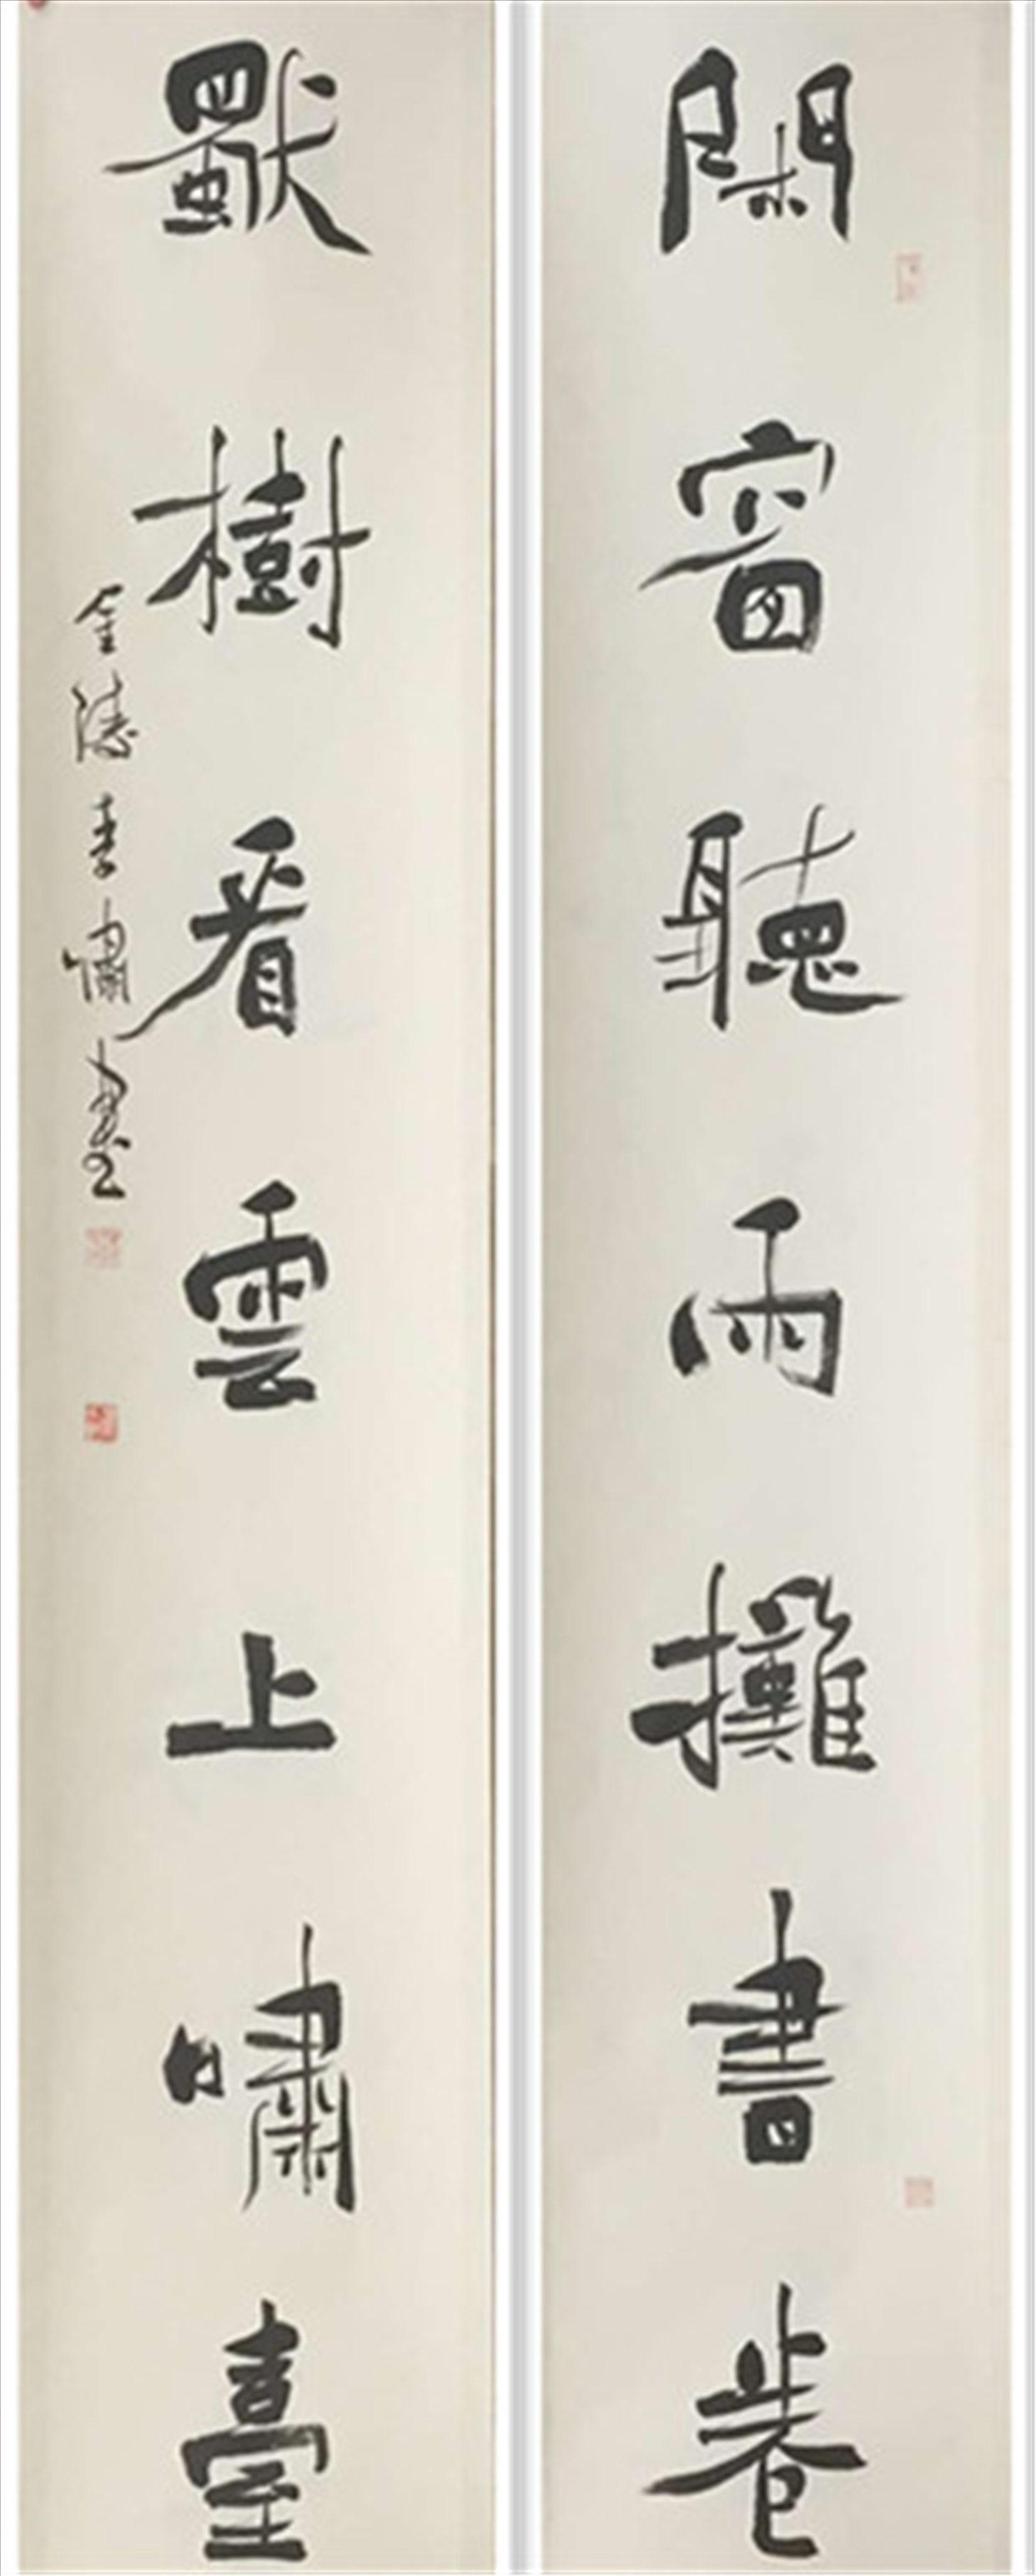 閑窗聽雨攤書卷
獨樹看雲上嘯臺
金陵李嘯